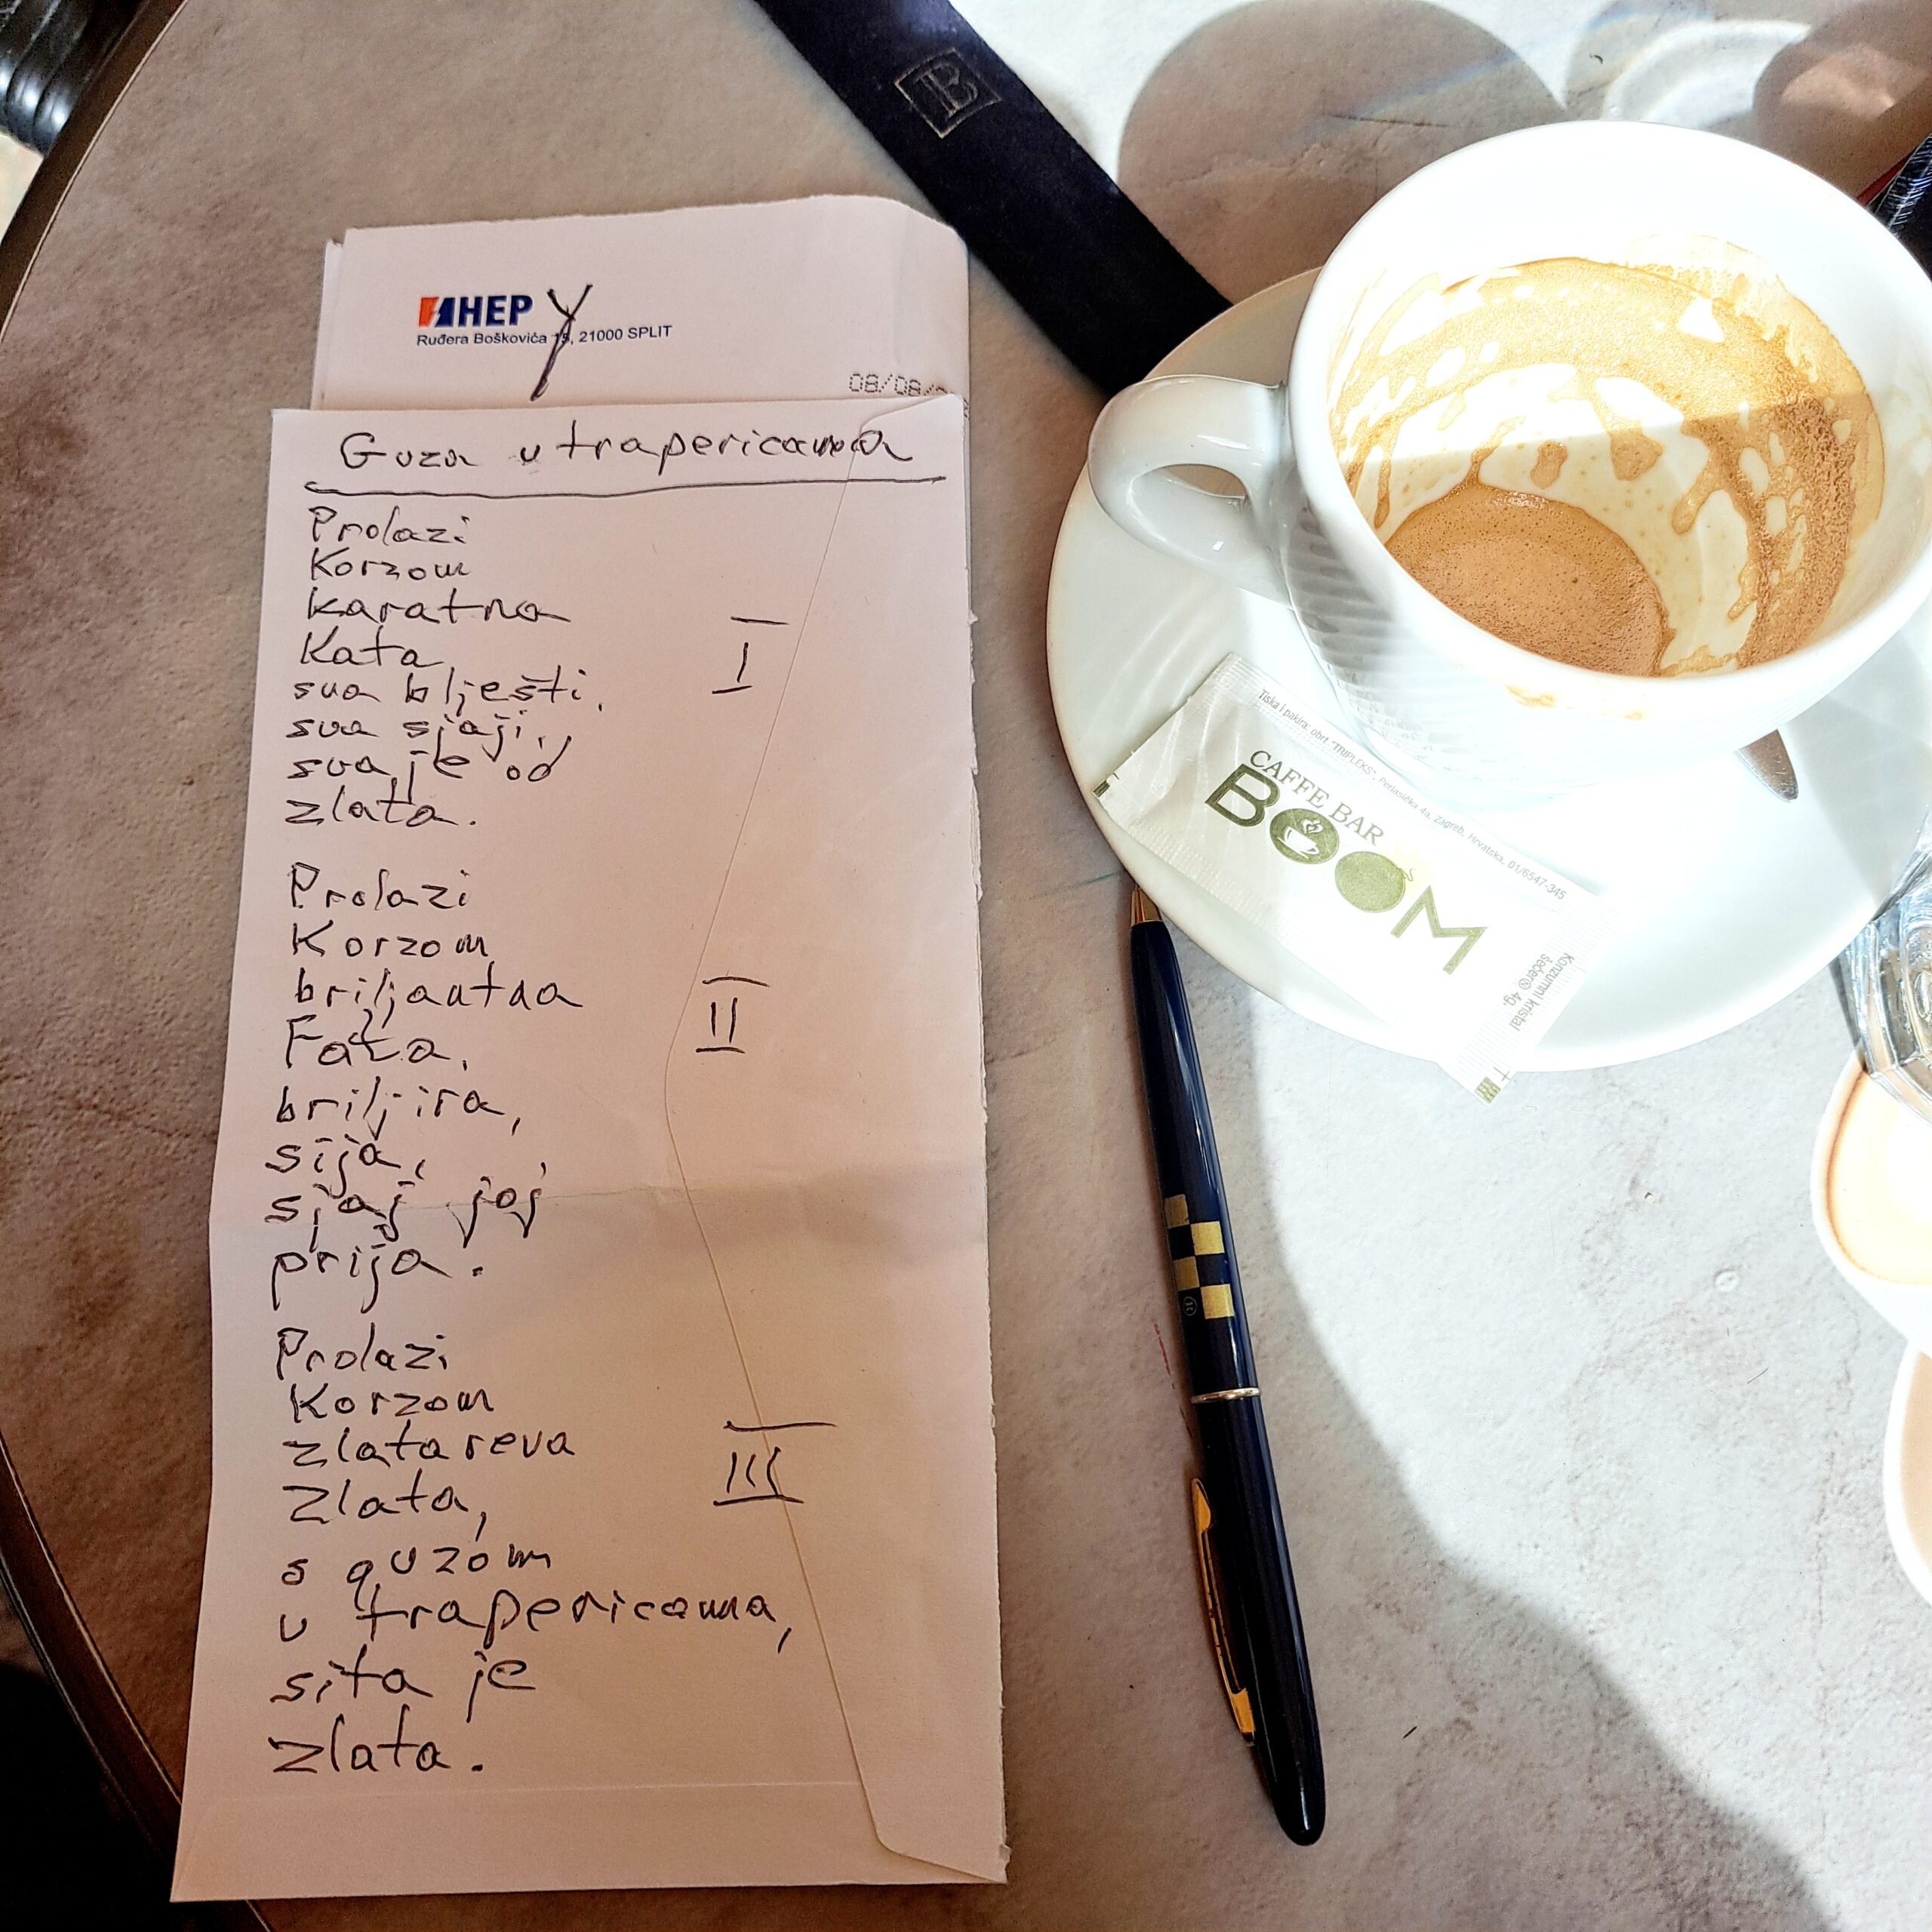 HEP
Ruđera Boškovića 15, 21000 SPLIT
08/08/
Guza u trapericama
Prolazi
Korzom
karatna
Kata,
sva blješti,
sva sjaji,
sva je od
zlata.
I
Prolazi
Korzom
briljantna
Fata,
briljira,
sija,
sjaj joj
prija.
II
Prolazi
Korzom
zlatareva
Zlata,
s guzom
u trapericama,
sita je
zlata.
III
B
Tiska i pakira: obrt "TRIPLEKS", Perjasička 4a, Zagreb, Hrvatska, 01/6547-345
CAFFE BAR
BOOM
Konzumni kristal
šećer® 4g.